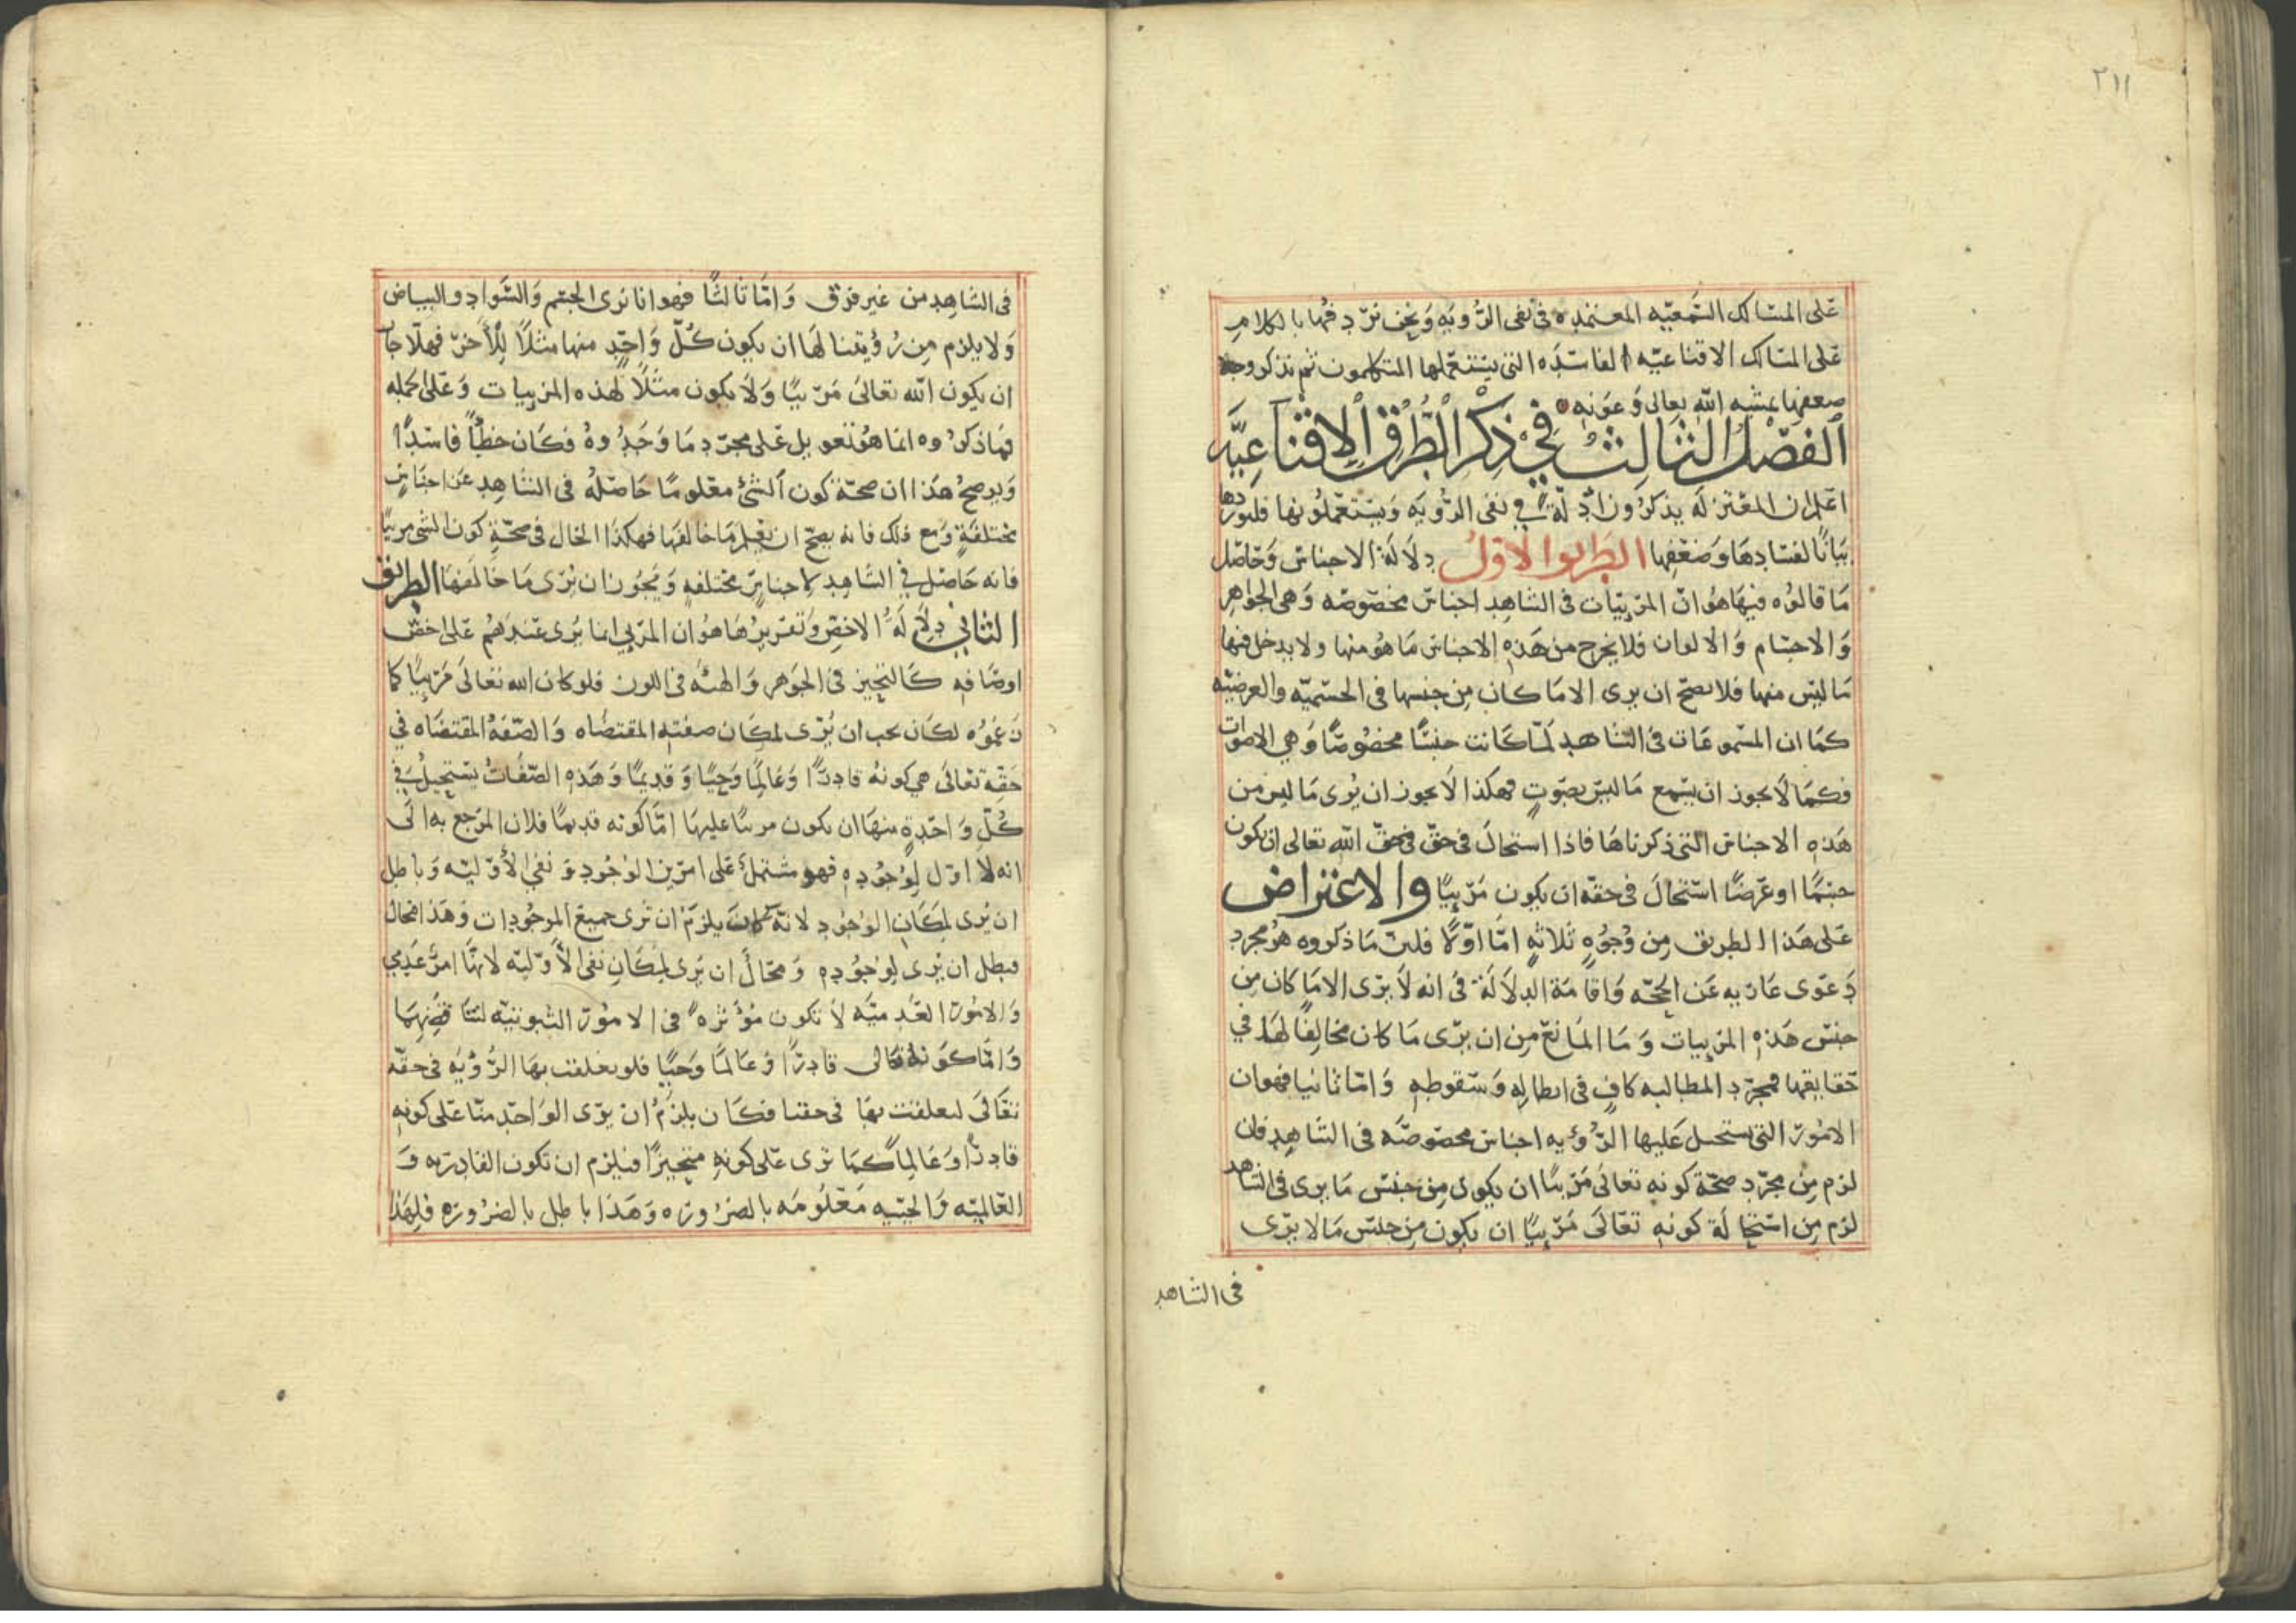 ٢١١
على المسالك السمعيه المعتمده في نفى الرؤيه ونحن نردفها بالكلام
على المسالك الاقناعيه الفاسده التى يستعملها المتكلمون ثم نذكر وجه
ضعفها بمشيه الله تعالى وعونه
الفصل الثالث في ذكر الطرق الاقناعيه
اعلم ان المعتزله يذكرون ادلة في نفى الرؤيه ويستعملونها فلنوردها
بيانا لفسادها وضعفها الطريق الاول دلالة الاجناس وحاصل
ما قالوه فيها هو ان المرئيات فى الشاهد اجناس مخصوصه وهى الجواهر
والاجسام والالوان فلا يخرج من هذه الاجناس ما هو منها ولا يدخل فيها
ما ليس منها فلا يصح ان يرى الا ما كان من جنسها فى الجسميه والعرضيه
كما ان المسموعات فى الشاهد لما كانت جنسا مخصوصا وهي الاصوات
فكما لا يجوز ان يسمع ما ليس بصوت فهكذا لا يجوز ان يرى ما ليس من
هذه الاجناس التى ذكرناها فاذا استحال فى حق فى حق الله تعالى ان يكون
جسما او عرضا استحال فى حقه ان يكون مرئيا والاعتراض
على هذا الطريق من وجوه ثلاثه اما اولا فلان ما ذكروه هو مجرد
دعوى عاريه عن الحجه واقامة الدلالة فى انه لا يرى الا ما كان من
جنس هذه المرئيات وما المانع من ان يرى ما كان مخالفا لها في
حقايقها فمجرد المطالبه كاف فى ابطاله وسقوطه واما ثانيا فهو ان
الامور التى يستحيل عليها الرؤيه اجناس مخصوصه فى الشاهد فان
لزم من مجرد صحة كونه تعالى مرئيا ان يكون من جنس ما يرى فى الشاهد
لزم من استحالة كونه تعالى مرئيا ان يكون من جنس ما لا يرى
فى الشاهد
فى الشاهد من غير فرق واما ثالثا فهو انا نرى الجسم والسواد والبياض
ولا يلزم من رؤيتنا لها ان يكون كل واحد منها مثلا للاخر فهلا جاز
ان يكون الله تعالى مرئيا ولا يكون مثلا لهذه المرئيات وعلى الجمله
فما ذكروه انما هو تعويل على مجرد ما وجدوه فكان خطأ فاسدا
ويوضح هذا ان صحة كون الشئ معلوما حاصله فى الشاهد عن اجناس
مختلفة ومع ذلك فانه يصح ان نعلم ما خالفها فهكذا الحال فى صحة كون الشى مرئيا
فانه حاصل في الشاهد لاجناس مختلفه ويجوز ان نرى ما خالفها الطريق
الثاني دلالة الاخص وتقريرها هو ان المرئى انما يرى عندهم على اخص
اوصافه كالتحيز فى الجوهر والهيئه فى اللون فلو كان الله تعالى مرئيا كما
زعموه لكان يجب ان يرى لمكان صفته المقتضاه والصفة المقتضاه في
حقه تعالى هي كونه قادرا وعالما وحيا وقديما وهذه الصفات يستحيل في
كل واحدة منها ان يكون مرئيا عليها اما كونه قديما فلان المرجع به الى
انه لا اول لوجوده فهو مشتمل على امرين الوجود ونفى الاوليه وباطل
ان يرى لمكان الوجود لانه كان يلزم ان نرى جميع الموجودات وهذا محال
فبطل ان يرى لوجوده ومحال ان يرى لمكان نفى الاوليه لانها امر عدمي
والامور العدميه لا تكون مؤثره في الامور الثبوتيه
واما كونه تعالى قادرا وعالما وحيا فلو تعلقت بها الرؤيه فى حقه
تعالى لتعلقت بها فى حقنا فكان يلزم ان يرى الواحد منا على كونه
قادرا وعالما كما نرى على كونه متحيزا فيلزم ان تكون القادريه و
العالميه والحييه معلومه بالضروره وهذا باطل بالضروره فلهذا